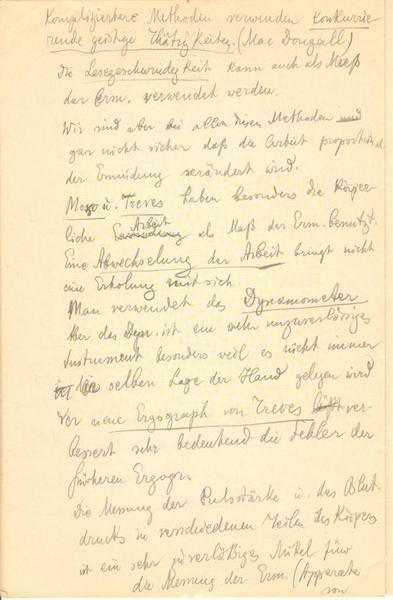 Komplizirtere Methoden verwenden Konkurrie-
rende geistige Thätigkeiten. (Mac Dougall)
Die Lesegeschwindigkeit kann auch als Maß
der Erm. verwendet werden.
Wir sind aber bei allen diesen Methoden
gar nicht sicher daß die Arbeit proportional
der Ermüdung verändert wird.
Mosso u. Treves haben besonders die Körper-
liche Arbeit als Maß der Erm. benutzt.
Eine Abwechselung der Arbeit bringt nicht
eine Erholung mit sich.
Man verwendet das Dynamometer
Aber das Dyn. ist ein unzuverlässiges
Instrument besonders weil es nicht immer
in selben Lage der Hand gelegen wird
Der neue Ergograph von Treves ver-
bessert sehr bedeutend die Fehler der
früheren Ergogr.
Die Messung der Pulsstärke u. des Blut-
drucks in verschiedenen Teilen des Körpers
ist ein sehr zuverläßiges Mittel für
die Messung der Erm. (Apparate
von